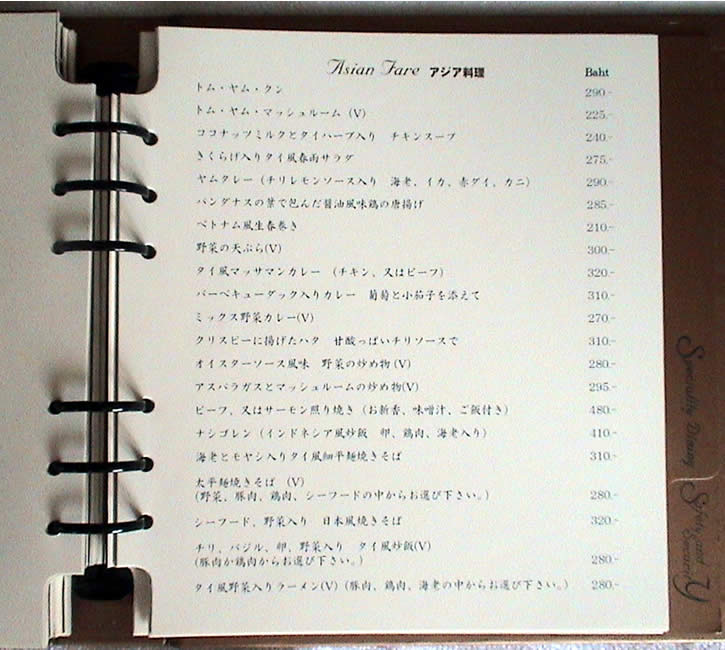 Asian Fare アジア料理 Baht
トム・ヤム・クン 290.-
トム・ヤム・マッシュルーム (V) 225.-
ココナッツミルクとタイハーブ入り チキンスープ 240.-
きくらげ入りタイ風春雨サラダ 275.-
ヤムタレー (チリレモンソース入り 海老、イカ、赤ダイ、カニ) 290.-
パンダナスの葉で包んだ醤油風味鶏の唐揚げ 285.-
ベトナム風生春巻き 210.-
野菜の天ぷら(V) 300.-
タイ風マッサマンカレー (チキン、又はビーフ) 320.-
バーベキューダック入りカレー 葡萄と小茄子を添えて 310.-
ミックス野菜カレー(V) 270.-
クリスピーに揚げたハタ 甘酸っぱいチリソースで 310.-
オイスターソース風味 野菜の炒め物(V) 280.-
アスパラガスとマッシュルームの炒め物(V) 295.-
ビーフ、又はサーモン照り焼き (お新香、味噌汁、ご飯付き) 480.-
ナシゴレン (インドネシア風炒飯 卵、鶏肉、海老入り) 410.-
海老とモヤシ入りタイ風細平麺焼きそば 310.-
太平麺焼きそば (V)
(野菜、豚肉、鶏肉、シーフードの中からお選び下さい。) 280.-
シーフード、野菜入り 日本風焼きそば 320.-
チリ、バジル、卵、野菜入り タイ風炒飯(V)
(豚肉か鶏肉からお選び下さい。) 280.-
タイ風野菜入りラーメン(V) (豚肉、鶏肉、海老の中からお選び下さい。) 280.-
Speciality Dining